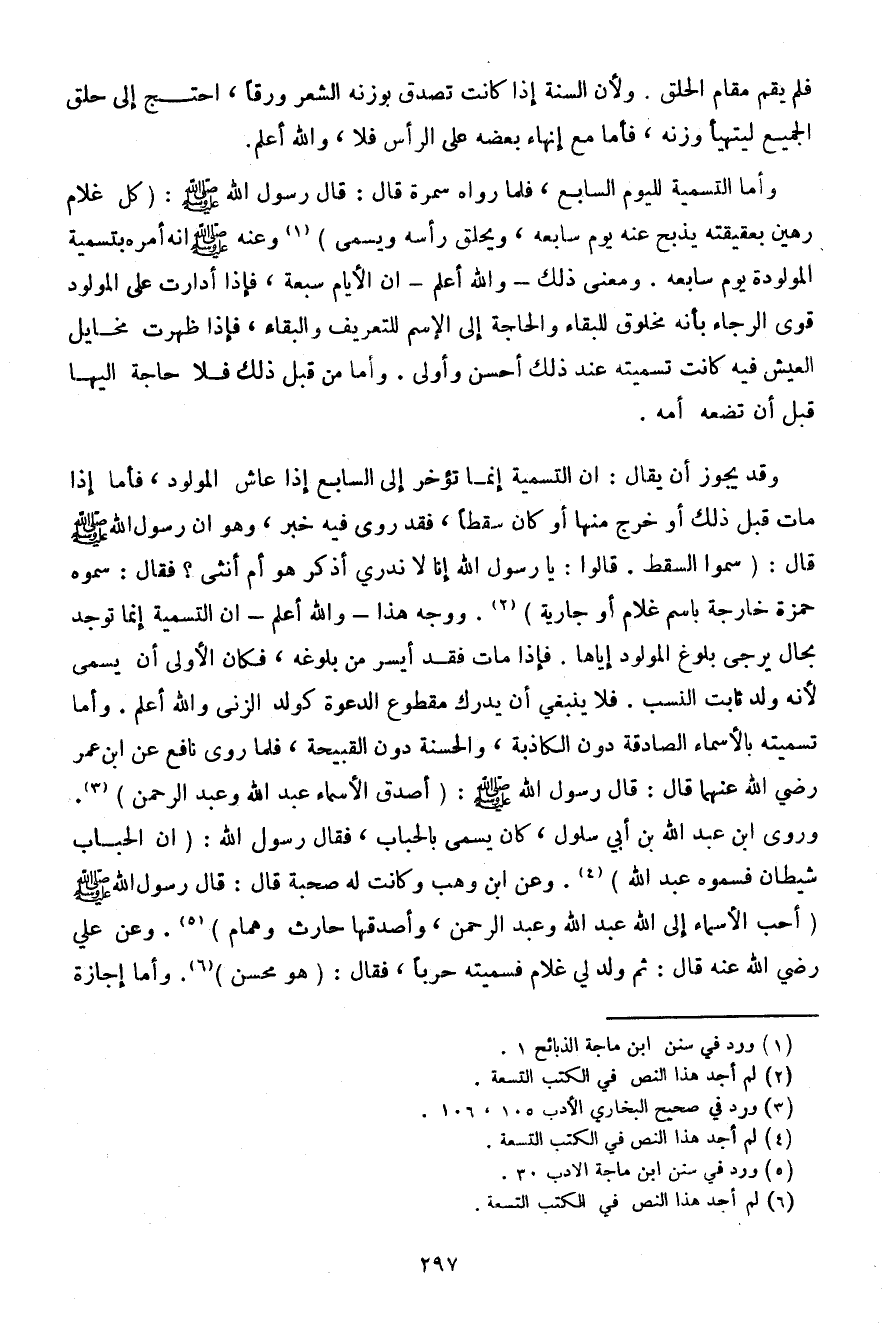 فلم يقم مقام الحلق . ولأن السنة إذا كانت تصدق بوزنه الشعر ورقاً ، احتـــــج إلى حلق
الجميـع ليتهيأ وزنه ، فأما مع إنهاء بعضه على الرأس فلا ، والله أعلم.
وأما التسمية لليوم السابـع ، فلما رواه سمرة قال : قال رسول الله ﷺ : (كل غلام
رهين بعقيقته يذبح عنه يوم سابعه ، ويحلق رأسه ويسمى ) (١) وعنه ﷺ انه أمره بتسمية
المولودة يوم سابعه . ومعنى ذلك – والله أعلم – ان الأيام سبعة ، فإذا أدارت على المولود
قوى الرجاء بأنه مخلوق للبقاء والحاجة إلى الإسم للتعريف والبقاء ، فإذا ظهرت مخـايل
العيش فيه كانت تسميته عند ذلك أحسن وأولى . وأما من قبل ذلك فــلا حاجة اليهـا
قبل أن تضعه أمه .
وقد يجوز أن يقال : ان التسمية إنمـا تؤخر إلى السابـع إذا عاش المولود ، فأما إذا
مات قبل ذلك أو خرج منها أو كان سقطاً ، فقد روى فيه خبر ، وهو ان رسول الله ﷺ
قال : ( سموا السقط . قالوا : يا رسول الله إنا لا ندري أذكر هو أم أنثى ؟ فقال : سموه
حمزة خارجة باسم غلام أو جارية ) (٢) . ووجه هذا – والله أعلم – ان التسمية إنما توجد
بحال يرجى بلوغ المولود إياها . فإذا مات فقـد أيسر من بلوغه ، فـكان الأولى أن يسمى
لأنه ولد ثابت النسب . فلا ينبغي أن يدرك مقطوع الدعوة كولد الزنى والله أعلم . وأما
تسميته بالأسماء الصادقة دون الكاذبة ، والحسنة دون القبيحة ، فلما روى نافع عن ابن عمر
رضي الله عنهما قال : قال رسول الله ﷺ : ( أصدق الأسماء عبد الله وعبد الرحمن ) (٣).
وروى ابن عبد الله بن أبي سلول ، كان يسمى بالحباب ، فقال رسول الله : ( ان الحبـاب
شيطان فسموه عبد الله ) (٤) . وعن ابن وهب وكانت له صحبة قال : قال رسول الله ﷺ
( أحب الأسماء إلى الله عبد الله وعبد الرحمن ، وأصدقها حارث وهمام ) (٥) . وعن علي
رضي الله عنه قال : ثم ولد لي غلام فسميته حرباً ، فقال : ( هو محسن ) (٦). وأما إجازة
(١) ورد في سنن ابن ماجة الذبائح ١ .
(٢) لم أجد هذا النص في الكتب التسعة .
(٣) ورد في صحيح البخاري الأدب ١٠٥ ، ١٠٦ .
(٤) لم أجد هذا النص في الكتب التسعة .
(٥) ورد في سنن ابن ماجة الادب ٣٠ .
(٦) لم أجد هذا النص في الكتب التسعة .
٢٩٧